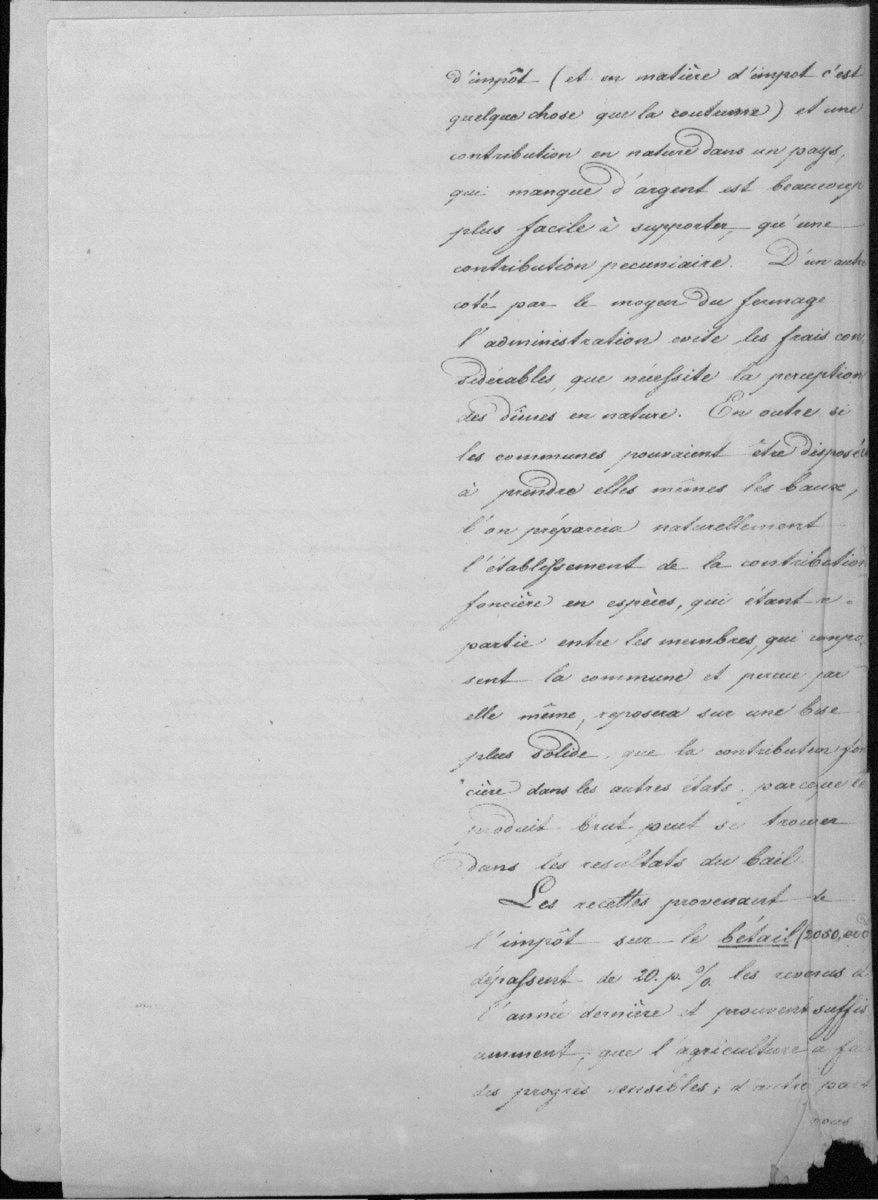 d'impôt (et en matière d'impot c'est
quelque chose que la coutume) et une
contribution en nature dans un pays,
qui manque d'argent est beaucoup
plus facile à supporter, qu'une
contribution pecuniaire. D'un autre
coté par le moyen du fermage
l'administration evite les frais con
sidérables, que nécessite la perception
des dîmes en nature. En outre si
les communes pouvaient être disposé
à prendre elles mêmes les baux,
l'on préparera naturellement
l'établissement de la contribution
foncière en espèces, qui étant re-
partie entre les membres, qui compo
sent la commune et percue par
elle même, reposera sur une base
plus solide, que la contribution fon
cière dans les autres états, parceque le
produit brut peut se trouver
dans les resultats du bail.
Les recettes provenant de
l'impôt sur le bétail (2050,000
dépassent de 20. p. % les revenus d
l'année dernière et prouvent suffis
amment, que l'agriculture a fa
des progrès sensibles; d'autre part
nous